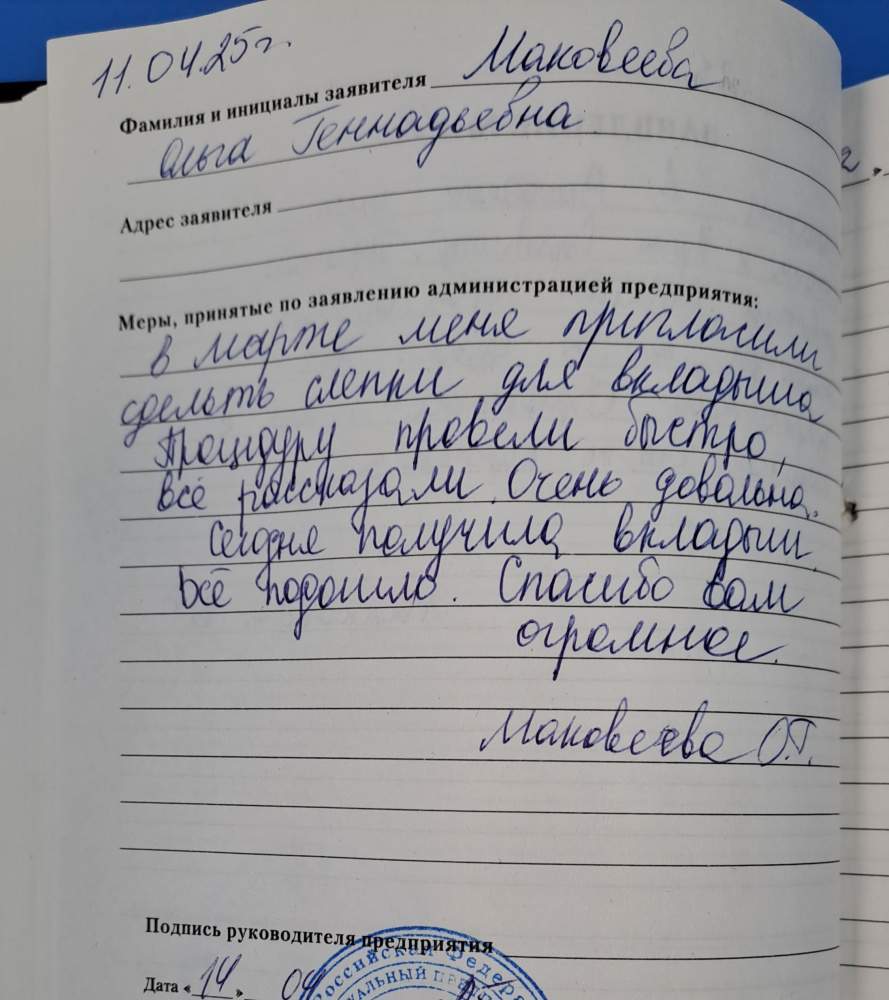 11.04.25г.
Фамилия и инициалы заявителя Маковеева
Ольга Геннадьевна
Адрес заявителя
Меры, принятые по заявлению администрацией предприятия:
в марте меня пригласили
сделать слепки для вкладыша
Процедуру провели быстро,
всё рассказали. Очень довольна.
Сегодня получила вкладыш.
Всё подошло. Спасибо вам
огромное.
Маковеева О.Г.
Подпись руководителя предприятия
Российская Федера
Дата «14» 04